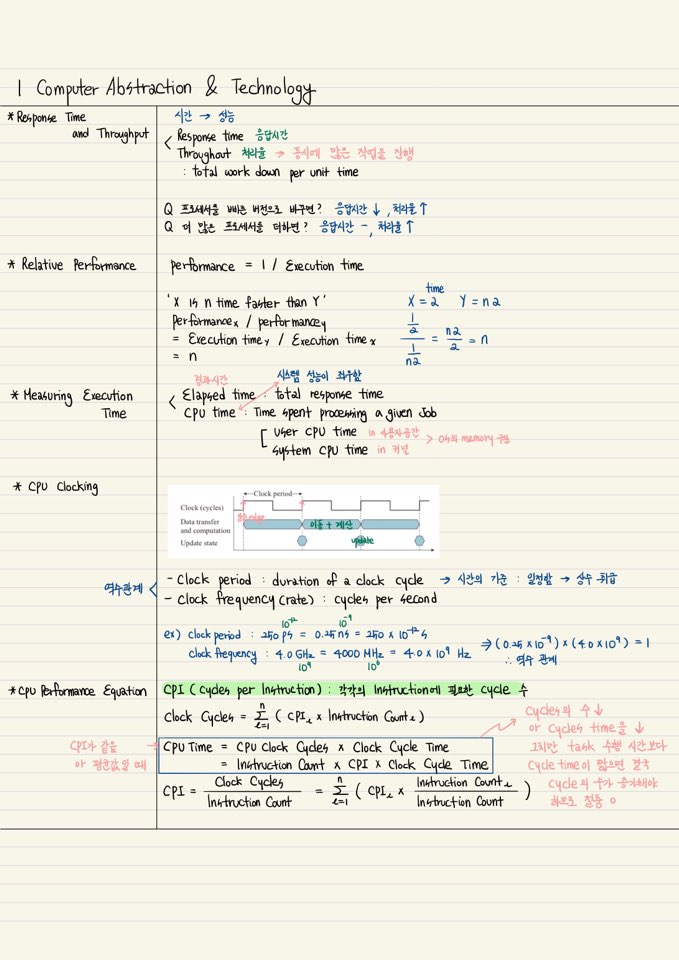 1 Computer Abstraction & Technology
* Response Time
and Throughput
시간 → 성능
< Response time 응답시간
Throughout 처리율 → 동시에 많은 작업을 진행
: total work down per unit time
Q 프로세서를 빠른 버전으로 바꾸면? 응답시간 ↓, 처리율 ↑
Q 더 많은 프로세서를 더하면? 응답시간 -, 처리율 ↑
* Relative Performance
performance = 1 / Execution time
'X is n time faster than Y'
performance_X / performance_Y
= Execution time_Y / Execution time_X
= n
time
X = 2 Y = n2
(1/2) / (1/n2) = n2/2 = n
* Measuring Execution
Time
경과시간
시스템 성능이 좌우함
< Elapsed time : total response time
CPU time : Time spent processing a given Job
[ user CPU time in 사용자공간
system CPU time in 커널
> OS의 memory
* CPU Clocking
Clock period
Clock (cycles)
Data transfer
and computation
이동 + 계산
Update state
update
역수관계 <
- Clock period : duration of a clock cycle → 시간의 기준 : 일정함 → 상수 취급
- Clock frequency (rate) : cycles per second
10⁻¹² 10⁻⁹
ex) clock period : 250 ps = 0.25 ns = 250 × 10⁻¹² s
clock frequency : 4.0 GHz = 4000 MHz = 4.0 × 10⁹ Hz
10⁹ 10⁶
⇒ (0.25 × 10⁻⁹) × (4.0 × 10⁹) = 1
∴ 역수 관계
* CPU Performance Equation
CPI (Cycles per Instruction) : 각각의 Instruction에 필요한 cycle 수
Clock Cycles = Σ_{i=1}^{n} ( CPI_i × Instruction Count_i )
CPI가 같음
or 평균값일 때 →
CPU Time = CPU Clock Cycles × Clock Cycle Time
= Instruction Count × CPI × Clock Cycle Time
CPI = Clock Cycles / Instruction Count = Σ_{i=1}^{n} ( CPI_i × Instruction Count_i / Instruction Count )
Cycles의 수 ↓
or Cycles time을 ↓
그치만 task 수행 시간보다
Cycle time이 짧으면 결국
Cycle의 수가 증가해야
하므로 절충 o